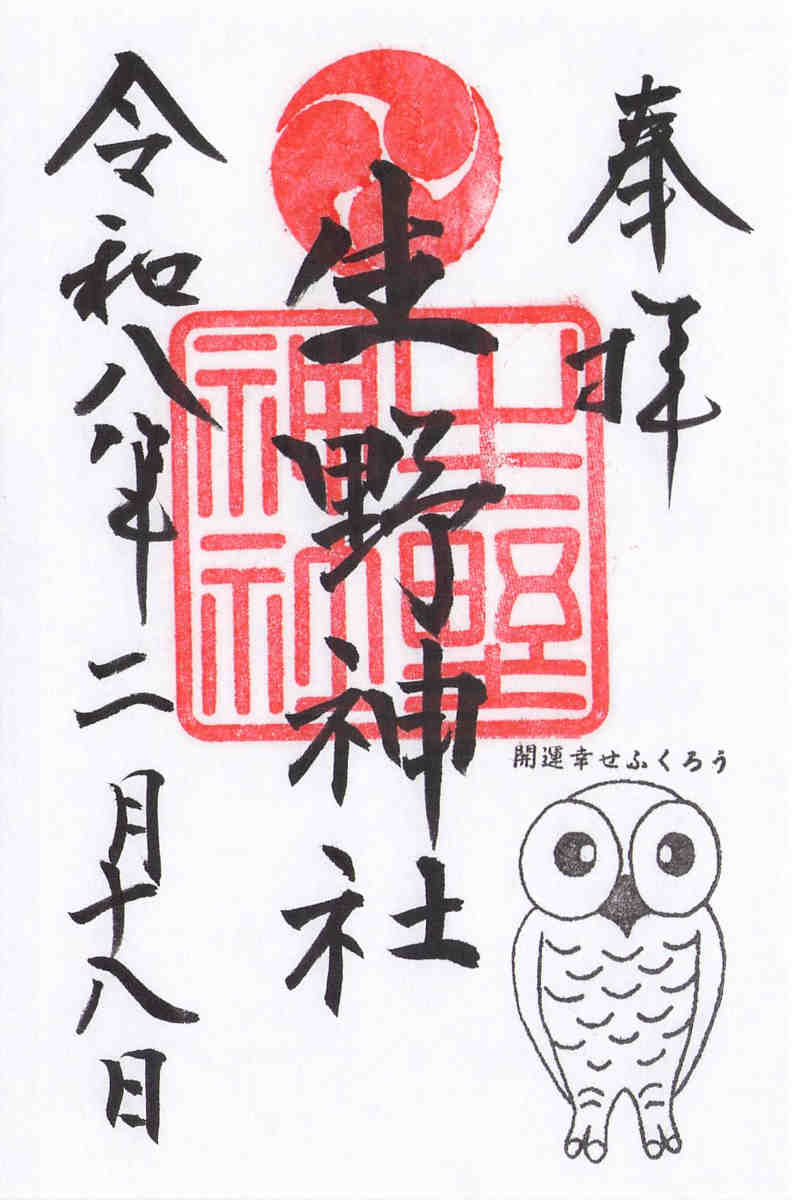 奉拝
生野神社
生野
神社
開運幸せふくろう
令和八年二月十八日